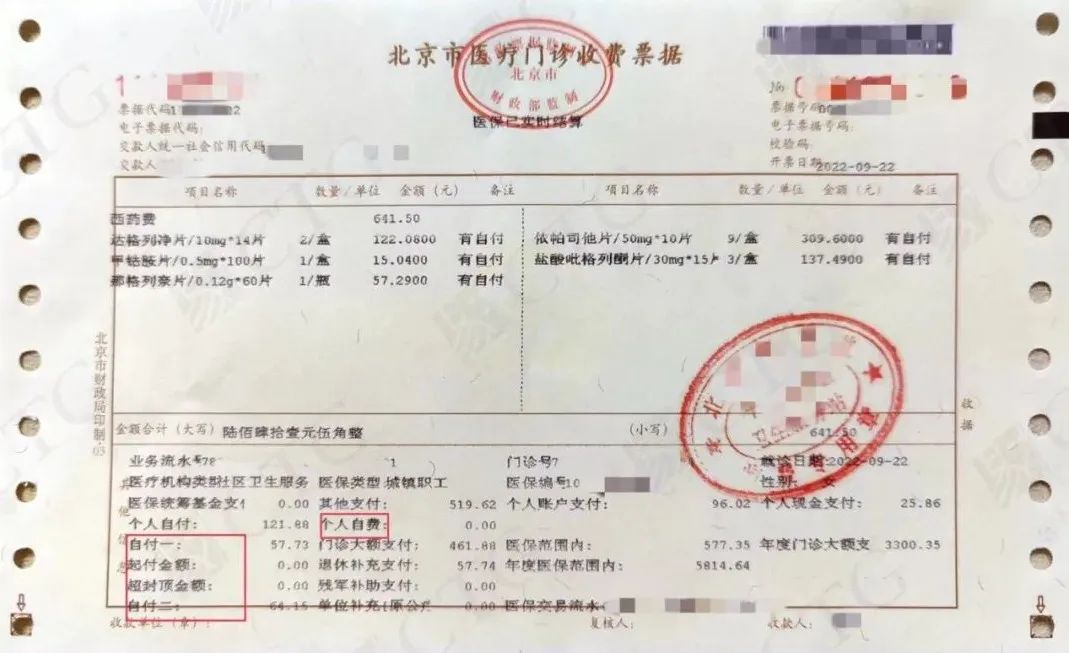 北京市医疗门诊收费票据
北京市
财政部监制
医保已实时结算
票据代码 22
电子票据代码:
交款人统一社会信用代码
交款人
No
票据号码
电子票据号码:
校验码:
开票日期 2022-09-22
项目名称 数量/单位 金额(元) 备注 项目名称 数量/单位 金额(元) 备注
西药费 641.50
达格列净片/10mg*14片 2/盒 122.0800 有自付 依帕司他片/50mg*10片 9/盒 309.6000 有自付
甲钴胺片/0.5mg*100片 1/盒 15.0400 有自付 盐酸吡格列酮片/30mg*15片 3/盒 137.4900 有自付
那格列奈片/0.12g*60片 1/瓶 57.2900 有自付
北京市财政局印制·03
收据
金额合计(大写) 陆佰肆拾壹元伍角整 (小写) 641.50
业务流水号78 1 门诊号7 就诊日期2022-09-22
医疗机构类型社区卫生服务 医保类型:城镇职工 医保编号10 性别: 女
医保统筹基金支付 0.00 其他支付: 519.62 个人账户支付: 96.02 个人现金支付: 25.86
个人自付: 121.88 个人自费: 0.00
自付一: 57.73 门诊大额支付: 461.88 医保范围内: 577.35 年度门诊大额支 3300.35
起付金额: 0.00 退休补充支付: 57.74 年度医保范围内: 5814.64
超封顶金额: 0.00 残军补助支付: 0.00
自付二: 64.15 单位补充[原公疗 0.00 医保交易流水
其他信息
收款单位(章): 复核人: 收款人: